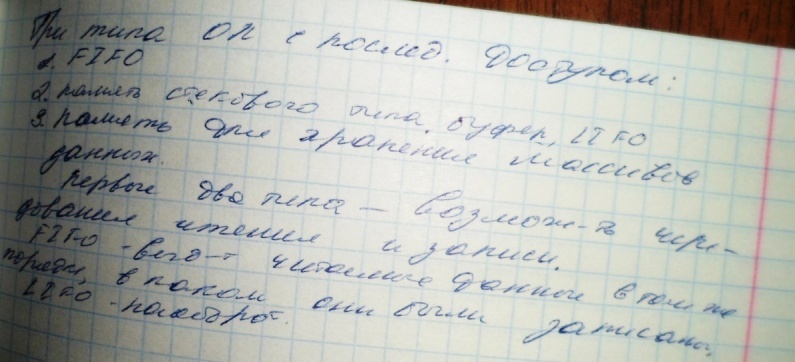 Три типа ОП с послед. доступом:
1. FIFO
2. память стекового типа, буфер, LIFO
3. память для хранения массивов
данных.
Первые два типа – возмож-ть чере-
дования чтения и записи.
FIFO - выд-т читаемые данные в том же
порядке, в каком они были записаны.
LIFO - наоборот.